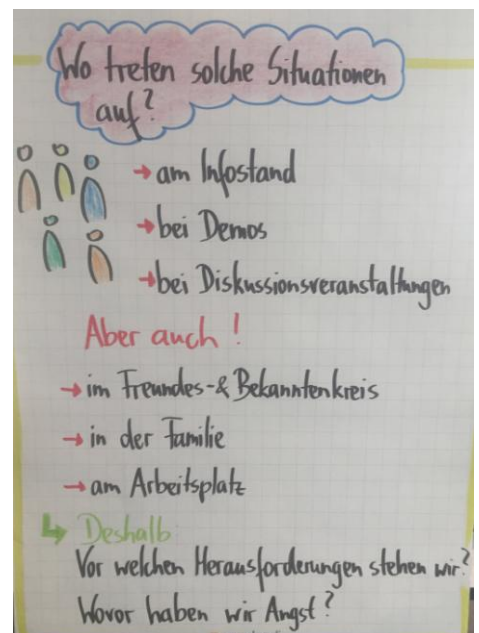 Wo treten solche Situationen
auf?
→ am Infostand
→ bei Demos
→ bei Diskussionsveranstaltungen
Aber auch!
→ im Freundes-& Bekanntenkreis
→ in der Familie
→ am Arbeitsplatz
↳ Deshalb:
Vor welchen Herausforderungen stehen wir?
Wovor haben wir Angst?